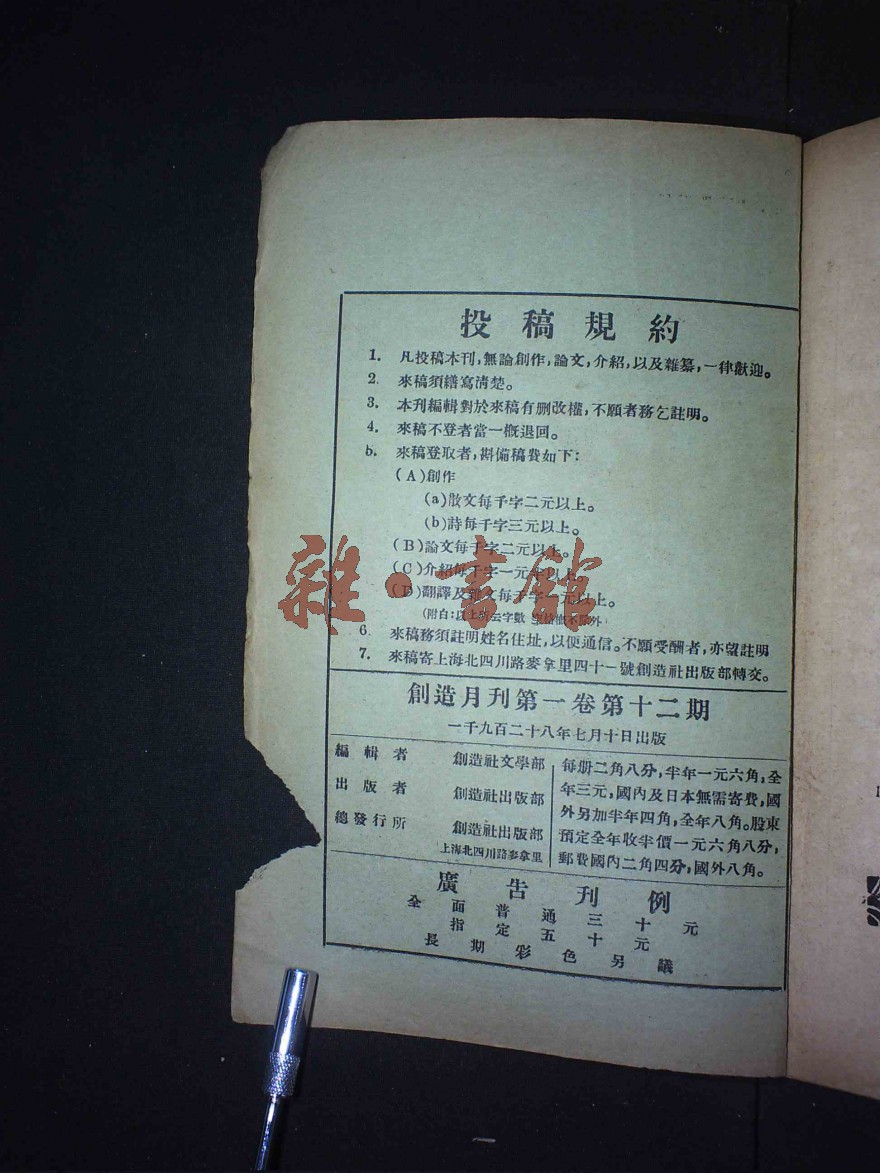 投稿規約
1. 凡投稿本刊，無論創作，論文，介紹，以及雜纂，一律歡迎。
2. 來稿須繕寫清楚。
3. 本刊編輯對於來稿有删改權，不願者務乞註明。
4. 來稿不登者當一概退回。
5. 來稿登取者，斟備稿費如下：
(A)創作
(a)散文每千字二元以上。
(b)詩每千字三元以上。
(B)論文每千字二元以上。
(C)介紹每千字一元半以上
(D)翻譯及雜文每千字一元以上。
(附白：以上所云字數 不除外)
6. 來稿務須註明姓名住址，以便通信。不願受酬者，亦望註明
7. 來稿寄上海北四川路麥拿里四十一號創造社出版部轉交。
創造月刊第一卷第十二期
一千九百二十八年七月十日出版
編輯者 創造社文學部
出版者 創造社出版部
總發行所 創造社出版部
上海北四川路麥拿里
每册二角八分，半年一元六角，全
年三元，國內及日本無需寄費，國
外另加半年四角，全年八角。股東
預定全年收半價一元六角八分，
郵費國內二角四分，國外八角。
廣告刊例
全面普通三十元
指定五十元
長期彩色另議
雜·書館